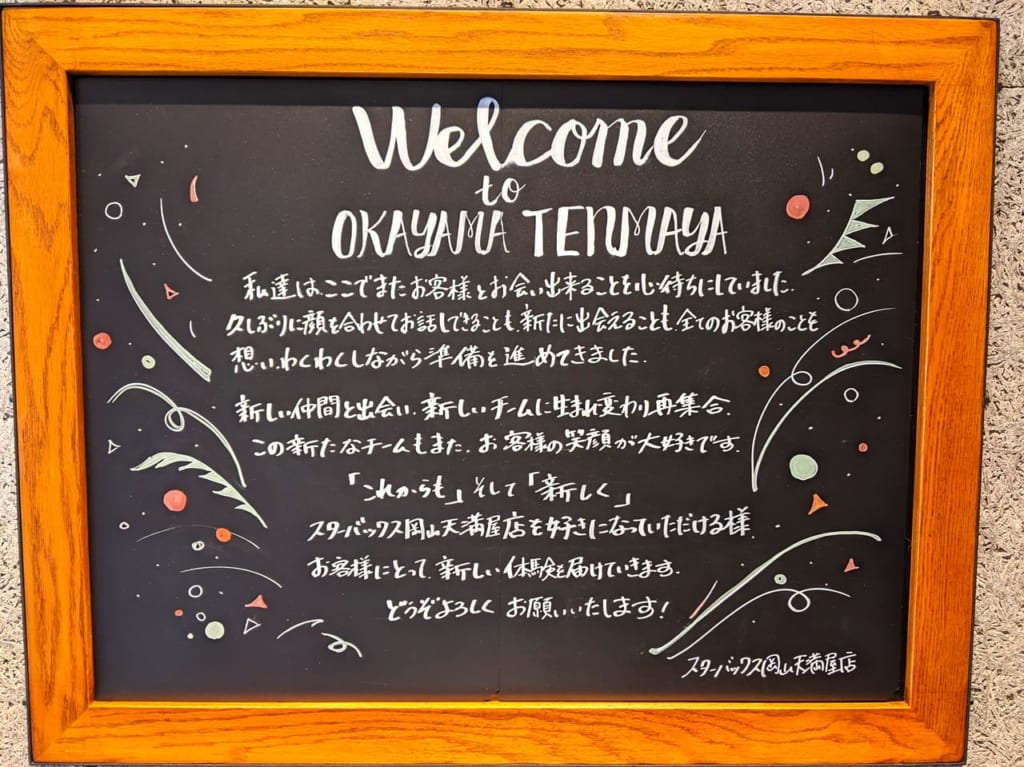 Welcome
to
OKAYAMA TENMAYA
私達は、ここでまたお客様とお会い出来ることを心待ちにしていました.
久しぶりに顔を合わせてお話しできることも、新たに出会えることも、全てのお客様のことを
想い、わくわくしながら準備を進めてきました.
新しい仲間と出会い、新しいチームに生まれ変わり再集合.
この新たなチームもまた、お客様の笑顔が大好きです.
「これからも」そして「新しく」
スターバックス岡山天満屋店を好きになっていただける様.
お客様にとって、新しい体験を届けていきます.
どうぞよろしく お願いいたします!
スターバックス岡山天満屋店